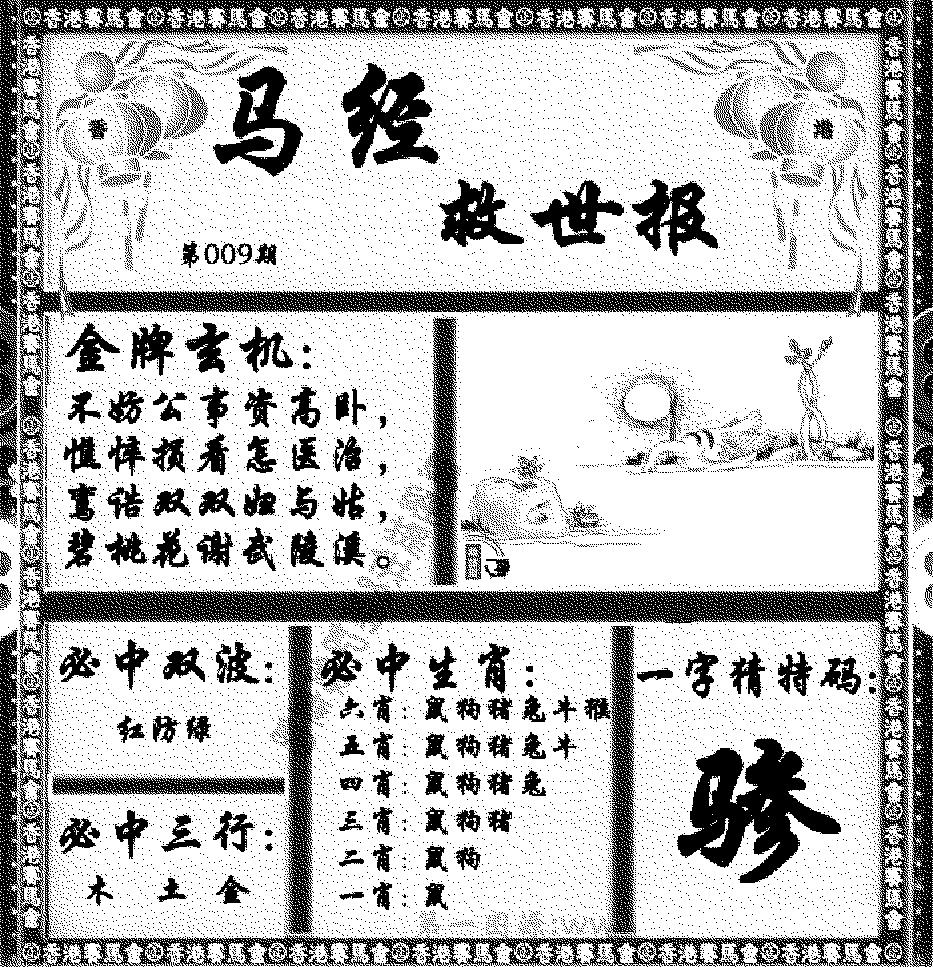 香港賽馬會 香港賽馬會 香港賽馬會 香港賽馬會 香港賽馬會 香港賽馬會 香港賽馬會
香
港
马经
救世报
第009期
金牌玄机：
不妨公事资高卧，
憔悴损看怎医治，
鸾诰双双妲与姑，
碧桃花谢武陵溪。
必中双波：
红防绿
必中三行：
木 土 金
必中生肖：
六肖：鼠狗猪兔牛猴
五肖：鼠狗猪兔牛
四肖：鼠狗猪兔
三肖：鼠狗猪
二肖：鼠狗
一肖：鼠
一字猜特码：
骖
香港賽馬會 香港賽馬會 香港賽馬會 香港賽馬會 香港賽馬會 香港賽馬會 香港賽馬會